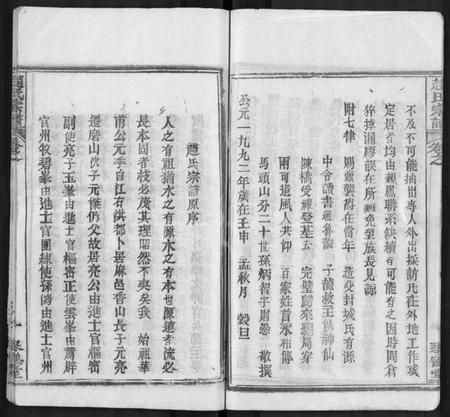 趙氏宗譜
卷之
不及不可能抽出專人外出採訪凡在外地工作或
定居者均由親屬聯系缺積有可能有之因時間倉
猝掛漏謬誤在所難免望族長見諒
附七律 賜產襲爵在當年 造父封城氏有源
中令讀書通魯論 子龍救主似神仙
陳橋受禪登基去 完璧歸來驷局穿
兩可遺風人共仰 百家姓首永相傳
馬頭山分二十世孫炳智字則愚 敬撰
公元一九九二年歲在壬申 孟秋月 穀旦
趙氏宗譜原序
人之有祖猶水之有源木之有本也源遠者流必
長本固者枝必茂其理固然不爽矣我 始祖華
甫公元季自江右洪都卜居麻邑香山長子元亮
遷磨山次子元傑仍父故居亮公由進士官樞密
副使亮子玉峯由進士官樞密正使雲峯由蔭辟
官州牧碧峯由進士官團練使孫濤由進士官州
趙氏宗譜
卷之